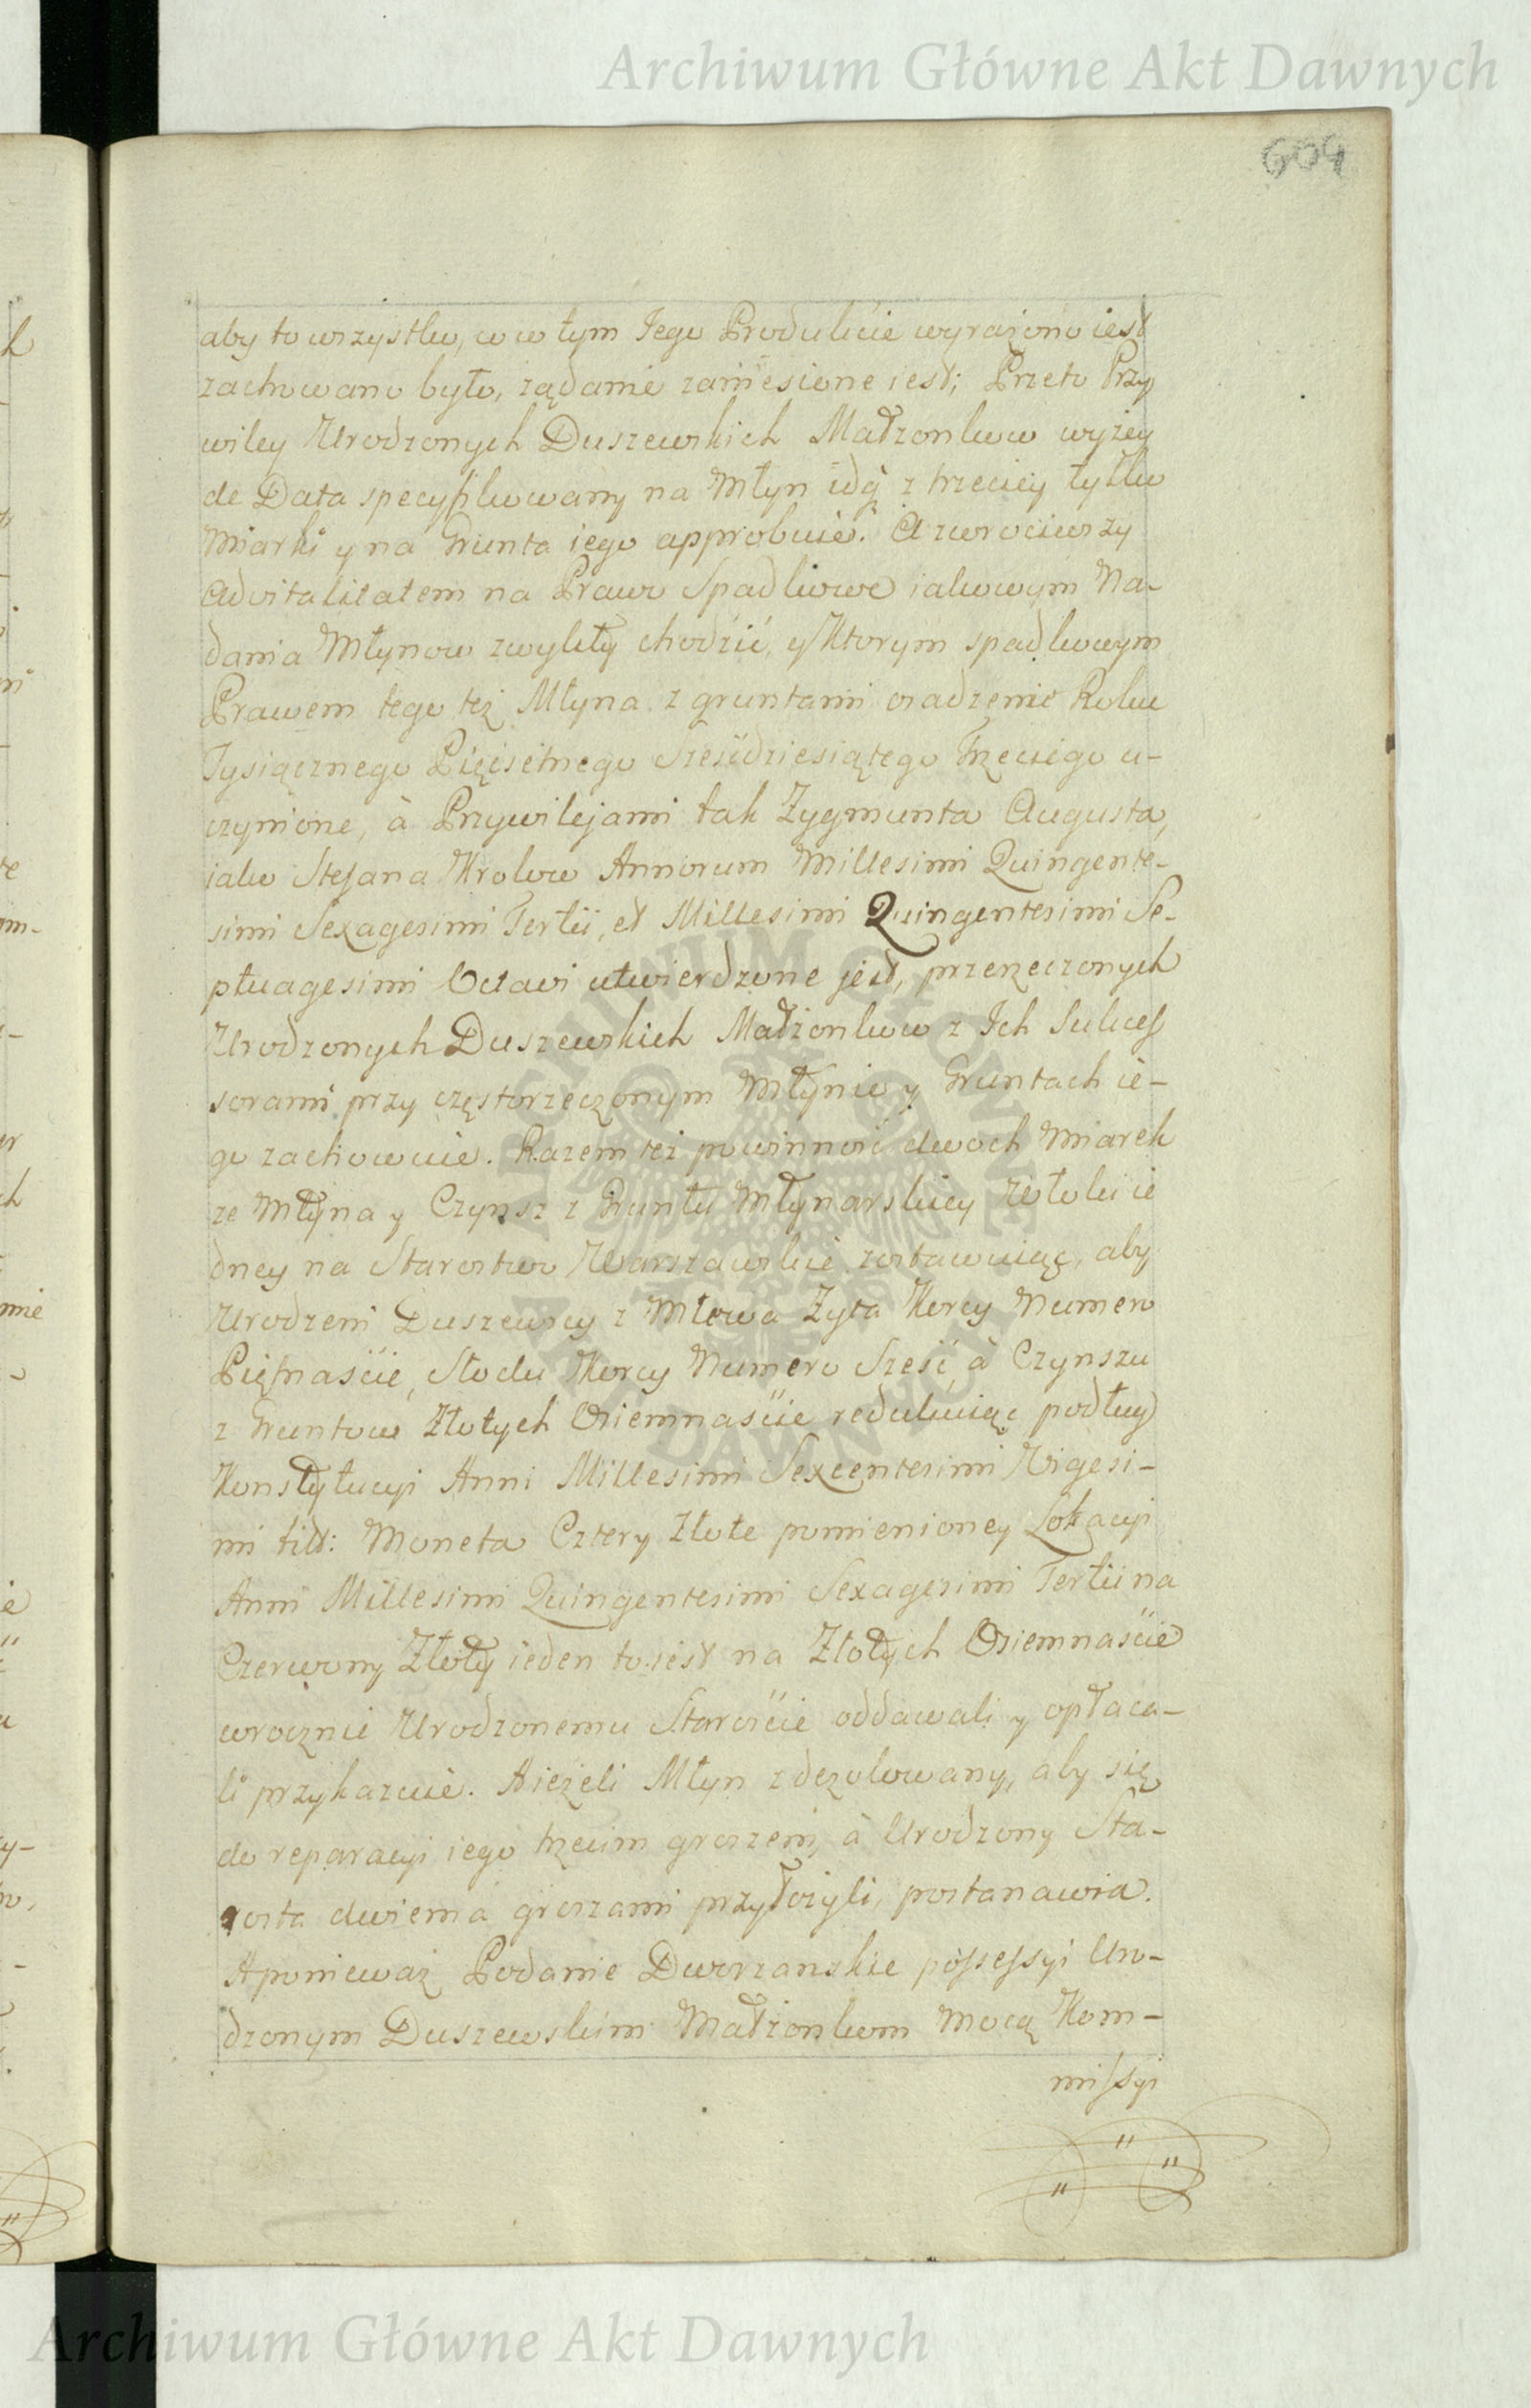 Archiwum Główne Akt Dawnych
604
aby to wszystko, co w tym Jego Produkcie wyrażono iest
zachowano było, żądanie zaniesione iest; Przeto Przy
wiley Urodzonych Duszewskich Małżonkow wyżey
de Data specyfikowany na Młyn idą z trzeciey tylko
Miarki y na Grunta iego approbuie. A zwrociwszy
Advitalitatem na Prawo Spadkowe iakowym Na-
dania Młynow zwykły chodzić, y Ktorym spadkowym
Prawem tego też Młyna z gruntami osadzenie Roku
Tysiącznego Pięćsetnego Sześćdziesiątego Trzeciego u-
czynione, à Przywilejami tak Zygmunta Augusta,
iako Stefana Krolow Annorum Millesimi Quingente-
simi Sexagesimi Tertii, et Millesimi Quingentesimi Se-
ptuagesimi Octavi utwierdzone jest, przerzeczonych
Urodzonych Duszewskich Małżonkow z Ich Sukces
sorami przy częstorzeczonym Młynie y Gruntach ie-
go zachowuie. Razem też powinność dwoch Miarek
ze Młyna y Czynsz z Gruntu Młynarskiey Włoki ie
dney na Starostwo Warszawskie zostawuiąc, aby
Urodzeni Duszewscy z Mlewa Żyta Korcy Numero
Piętnaście, Słodu Korcy Numero Sześć, à Czynszu
z Gruntow Złotych Osiemnaście redukuiąc podług
Konstytucyi Anni Millesimi Sexcentesimi Vigesi-
mi tit: Moneta Cztery Złote pomienioney Lokacyi
Anni Millesimi Quingentesimi Sexagesimi Tertii na
Czerwony Złoty ieden to iest na Złotych Osiemnaście
corocznie Urodzonemu Staroście oddawali y opłaca-
li przykazuie. A ieżeli Młyn zdezolowany, aby się
do reparacyi iego trzecim groszem, à Urodzony Sta-
rosta dwiema groszami przyłożyli, postanawia.
A ponieważ Podanie Dworzanskie possessyi Uro-
dzonym Duszewskim Małżonkom mocą Kom-
missyi
Archiwum Główne Akt Dawnych